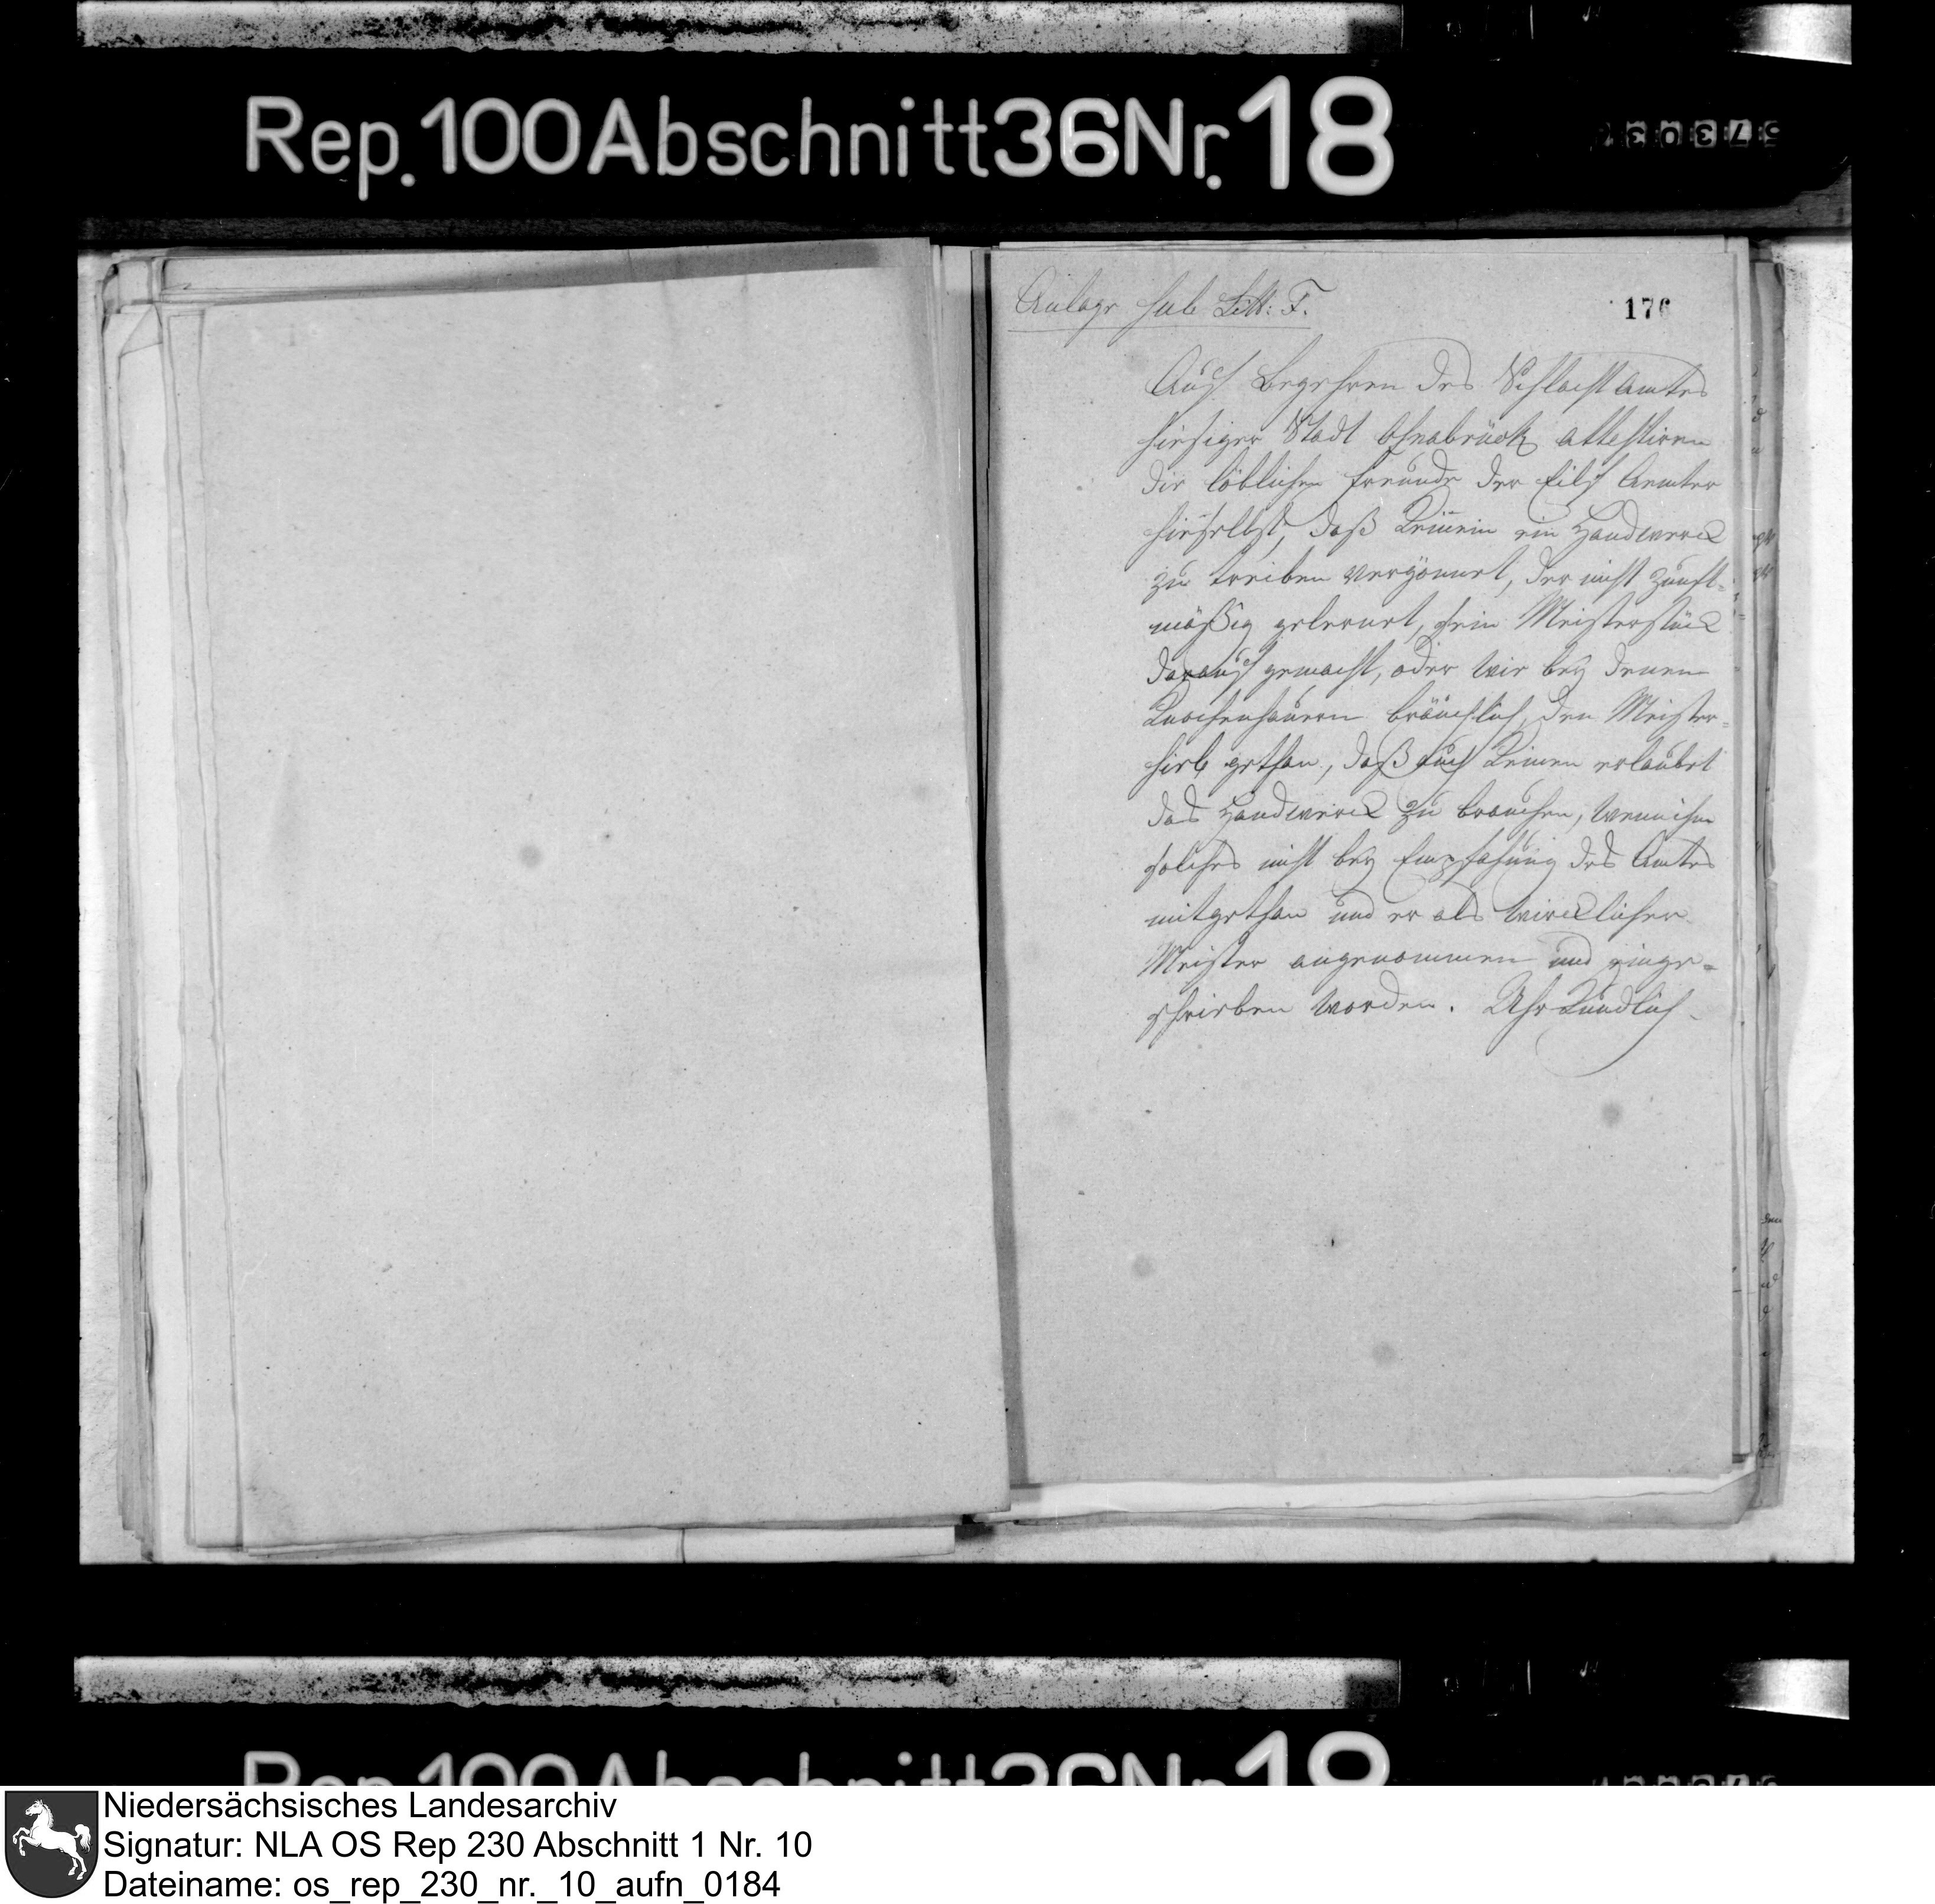 Rep. 100 Abschnitt 36 Nr. 18
Anlage sub Litt: F.
176
Auf Begehren des Schlacht Amtes
hiesiger Stadt Osnabrück attestiren
die löblichen Freunde der Eilf Aemter
hieselbst, daß Keinem ein Handwerck
zu treiben vergönnet, der nicht zunft-
mäßig gelernet, sein Meisterstück
darauf gemacht, oder wie bey denen
Knochenhauern bräuchlich, den Meister-
hieb gethan, daß auch Keinem erlaubet
das Handwerck zu brauchen, wenn ihm
solches nicht bey Empfahung des Amtes
mitgethan und er als wircklicher
Meister angenommen und einge-
schrieben worden. Uhrkundlich
Rep. 100 Abschnitt 36 Nr. 18
Niedersächsisches Landesarchiv
Signatur: NLA OS Rep 230 Abschnitt 1 Nr. 10
Dateiname: os_rep_230_nr._10_aufn_0184